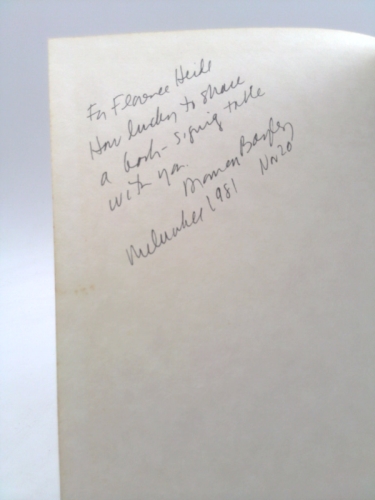 For Florence Heide
How lucky to share
a book-signing table
with you.
Marion
Milwaukee 1981 Nov 20